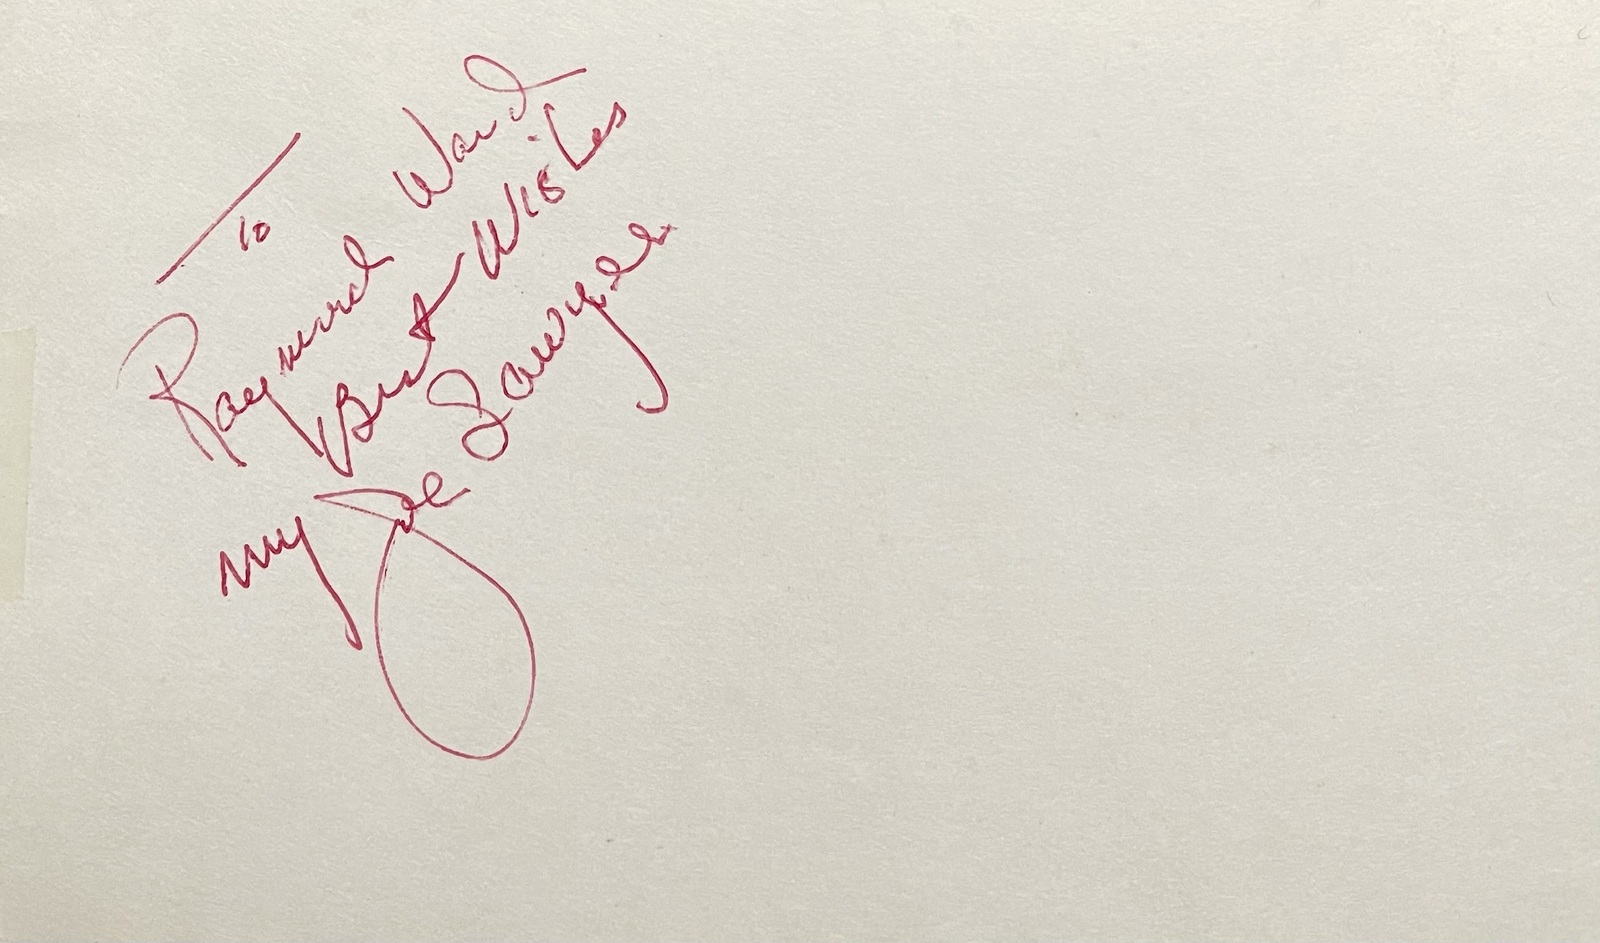 To
Raymond Ward
Best Wishes
my Joe Sawyer